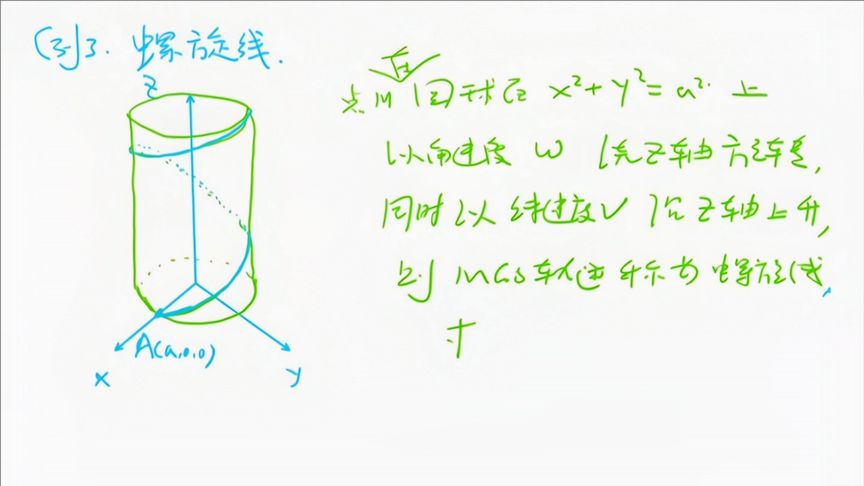 例3. 螺旋线.
点M 在 圆柱面 x²+y²=a² 上
以角速度 ω 绕Z轴旋转,
同时以线速度V 沿Z轴上升,
则M的轨迹称为螺旋线,
Z
A(a,0,0)
x
y